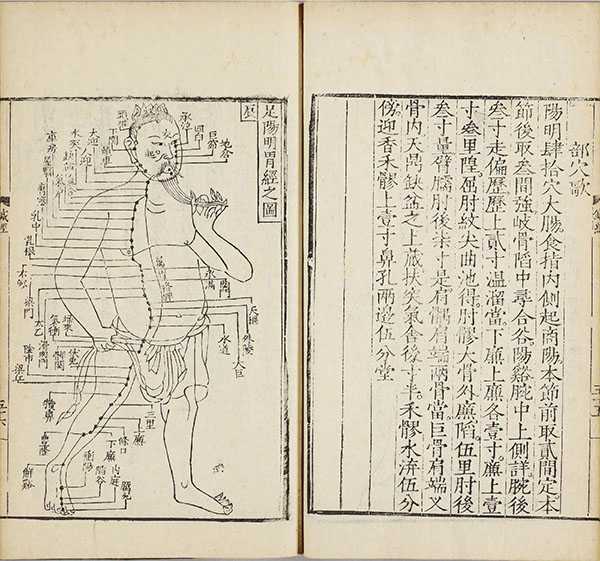 部穴歌
陽明肆拾穴大腸食指内側起商陽本節前取貳間定本
節後取叁間強岐骨陷中尋合谷陽谿腕中上側詳腕後
叁寸走偏歷歷上貳寸温溜當下廉上廉各壹寸廉上壹
寸叁里隍屈肘紋尖曲池得肘髎大骨外廉陷伍里肘後
叁寸量臂臑肘後柒寸是肩髃肩端兩骨當巨骨肩端叉
骨内天鼎缺盆之上藏扶突氣舍後寸半禾髎水溝伍分
傍迎香禾髎上壹寸鼻孔兩邊伍分堂
足陽明胃經之圖
地倉
巨窌
四白
承泣
頭維
下關
大迎
人迎
水突
缺盆
氣舍
庫房
乳中
乳根
不容
梁門
關門
太乙
天樞
外陵
大巨
水道
氣衝
髀關
伏兔
陰市
梁丘
犢鼻
三里
條口
下廉
豐隆
解谿
衝陽
陷谷
内庭